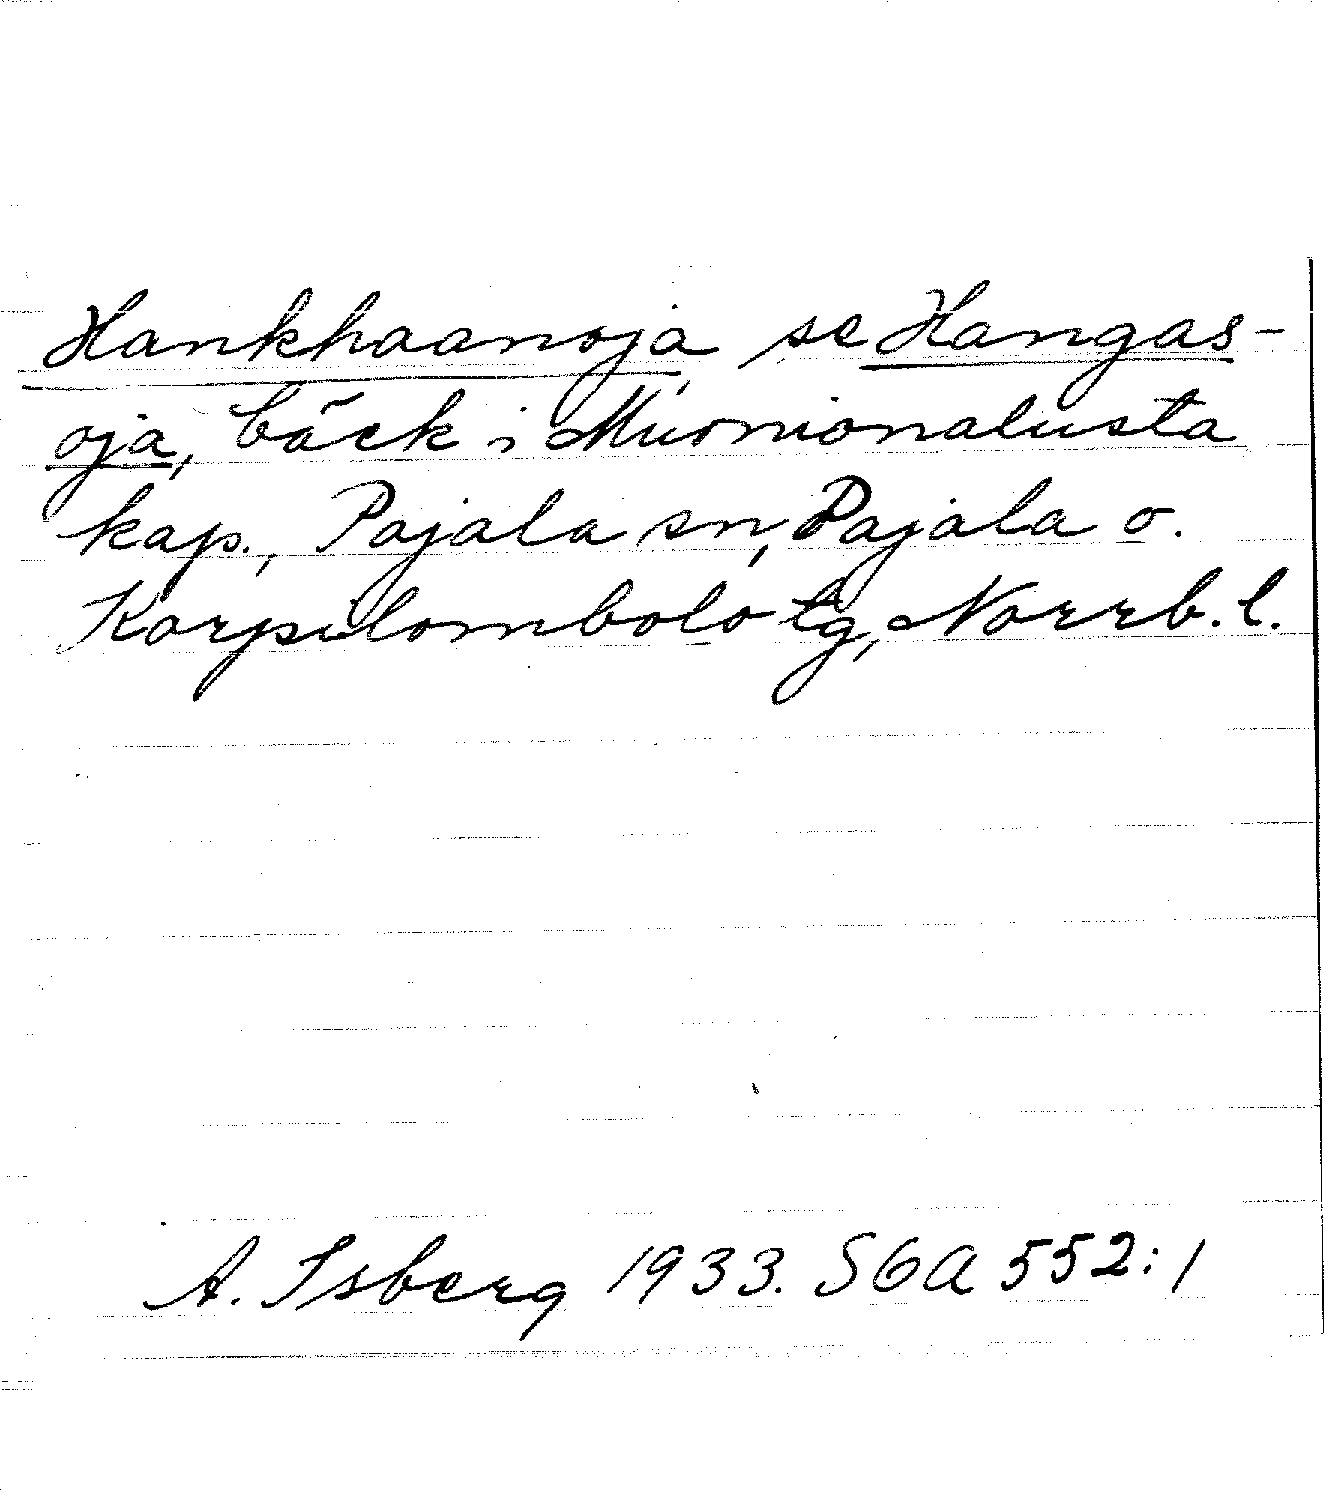 Hankhaanoja, se Hangas-
oja, bäck i Muonionalusta
kap., Pajala sn, Pajala o.
Korpilombolo tg, Norrb. l.
A. Isberg 1933. SGA 552:1